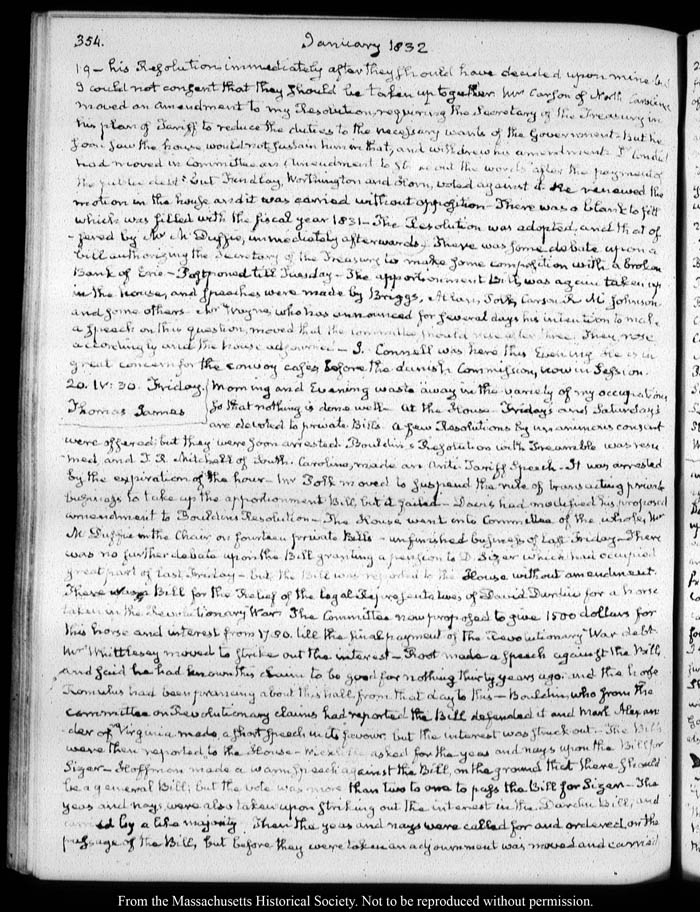 354. January 1832
19 – his Resolution immediately after they should have decided upon mine but
I could not consent that they should be taken up together. Mr Carson of North Carolina
moved an amendment to my Resolution, requiring the Secretary of the Treasury in
his plan of Tariff to reduce the duties to the necessary wants of the Government. But he
soon saw the house would not sustain him in that, and withdrew his amendment. I
had moved in Committee an Amendment to strike out the words "after the payment of
the public debt" but Findlay, Worthington and Horn, voted against it. He renewed the
motion in the house and it was carried without opposition – There was a blank to fill
which was filled with the fiscal year 1831 – The Resolution was adopted, and that of
-fered by Mr McDuffie, immediately afterwards. There was some debate upon a
bill authorizing the Secretary of the Treasury to make some composition with a broken
Bank of Erie – Postponed till Tuesday – The apportionment Bill, was again taken up
in the house, and speeches were made by Briggs, Polk, Carson, R. M. Johnson
and some others – Mr Wayne, who has announced for several days his intention to make
a speech on this question, moved that the committee should rise after three. They rose
accordingly and the house adjourned – J. Connell was here this Evening. He is in
great concern for the convoy cases before the danish Commission, now in Session.
20. IV: 30. Friday. Morning and Evening waste away in the variety of my occupations
Thomas James so that nothing is done well – At the House. Fridays and Saturdays
are devoted to private Bills. A few Resolutions by unanimous consent
were offered; but they were soon arrested. Bouldin's Resolution with Preamble was resu
-med, and T. R. Mitchell of South Carolina, made an Anti-Tariff Speech – It was arrested
by the expiration of the hour – Mr Polk moved to suspend the rule of transacting private
business to take up the apportionment Bill, but it failed – Davis had modified his proposed
amendment to Bouldin's Resolution – The House went into Committee of the whole, Mr
McDuffie in the Chair on fourteen private Bills – unfinished business of last Friday – There
was no further debate upon the Bill granting a pension to D. Sizer which had occupied
great part of last Friday – but the Bill was reported to the House without amendment.
There was a Bill for the Relief of the legal Representatives of David Dardin for a horse
taken in the Revolutionary War. The Committee now proposed to give 1500 dollars for
this horse and interest from 1780. till the final payment of the Revolutionary War debt.
Mr Whittlesey moved to strike out the interest – Root made a speech against the Bill,
and said he had known this claim to be good for nothing thirty years ago: and the horse
Romulus had been prancing about this hall, from that day to this – Bouldin, who from the
committee on Revolutionary claims had reported the Bill defended it and Mark Alexan
der of Virginia made, a short speech in its favour, but the interest was struck out – The Bills
were then reported to the House – Wickliffe asked for the yeas and nays upon the Bill for
Sizer – Hoffman made a warm speech against the Bill, on the ground that there should
be a general Bill; but the vote was more than two to one to pass the Bill for Sizer – The
yeas and nays were also taken upon striking out the interest in the Dardin Bill, and
carried by a like majority. Then the yeas and nays were called for and ordered, on the
passage of the Bill, but before they were taken an adjournment was moved and carried
From the Massachusetts Historical Society. Not to be reproduced without permission.